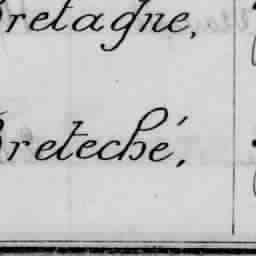 Bretagne,
Breteché,